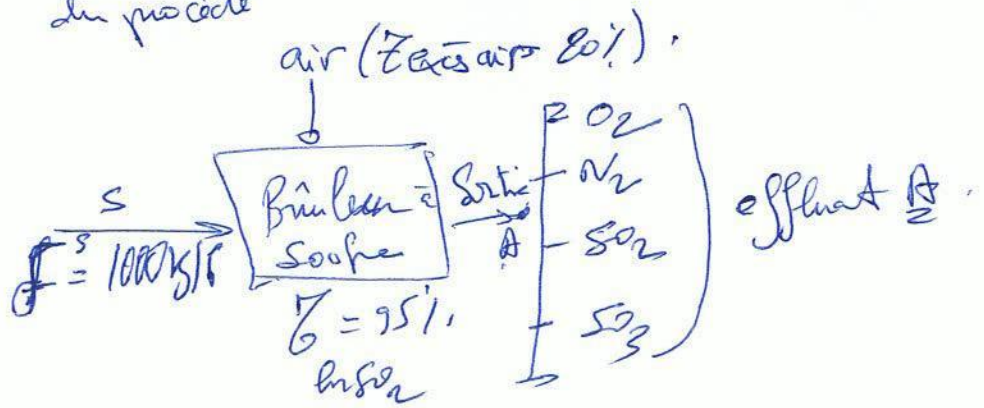 du procédé
air (% excès air 20%).
S
f^s = 1000 kg/h
Brûleur à
Soufre
Sortie
A
O2
N2
SO2
SO3
effluent A.
τ = 95%
en SO2